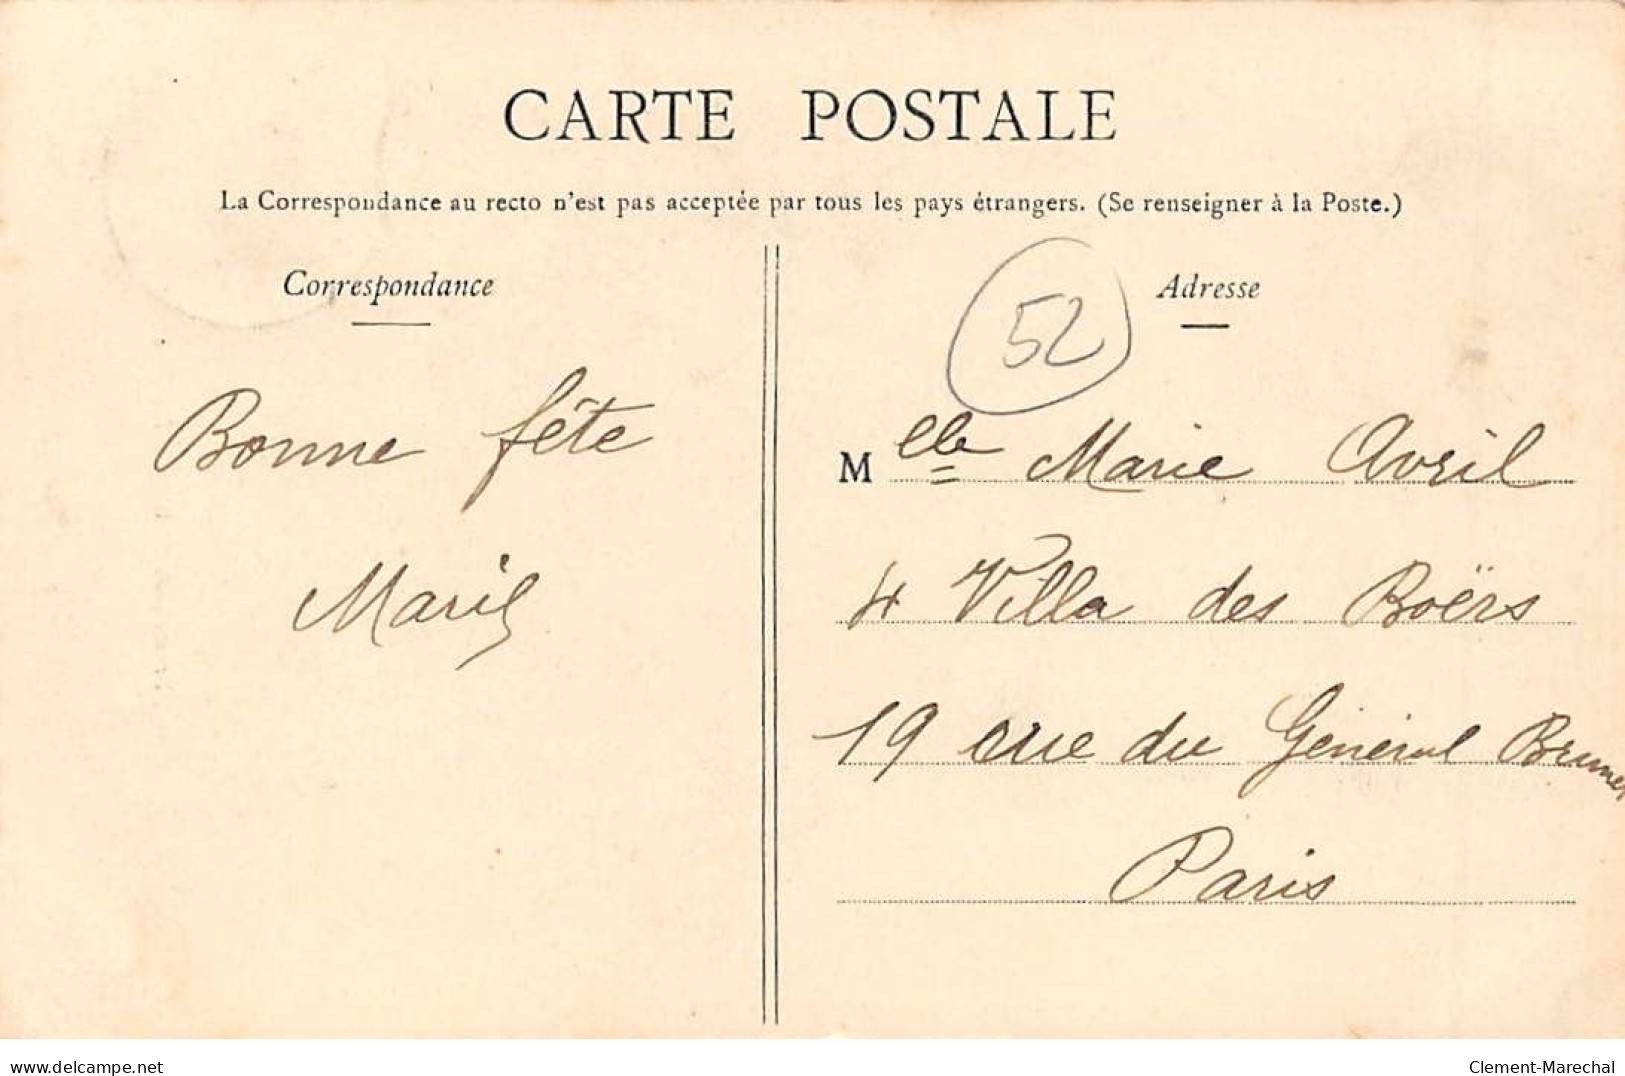 CARTE POSTALE
La Correspondance au recto n'est pas acceptée par tous les pays étrangers. (Se renseigner à la Poste.)
Correspondance
Bonne fête
52
Adresse
Melle Marie Avril
4 Villa des Boërs
19 rue du Général Brunet
Paris
delcampe.net
Clement-Marechal